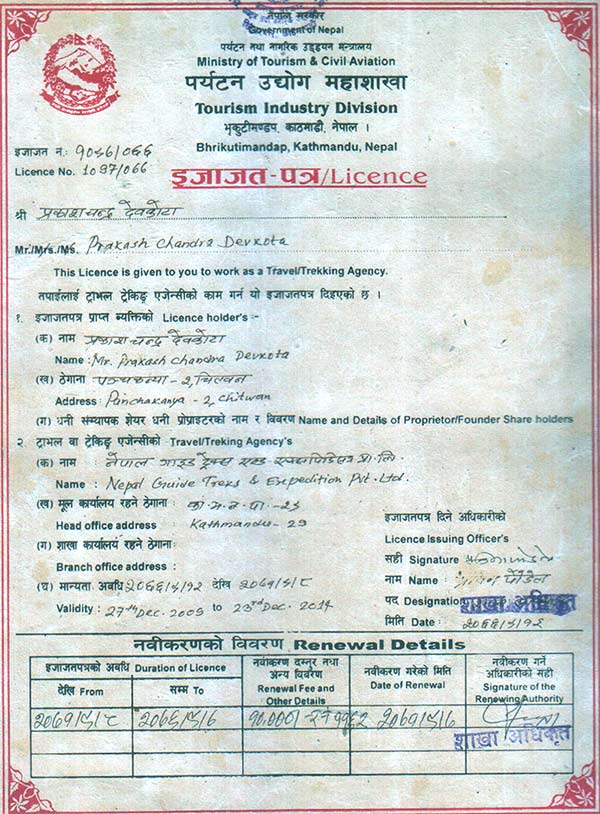 नेपाल सरकार
Government of Nepal
पर्यटन तथा नागरिक उड्डयन मन्त्रालय
Ministry of Tourism & Civil Aviation
पर्यटन उद्योग महाशाखा
Tourism Industry Division
भृकुटीमण्डप, काठमाडौं, नेपाल ।
Bhrikutimandap, Kathmandu, Nepal
इजाजत नं.:
Licence No. 1097/066
इजाजत-पत्र/Licence
श्री प्रकाशचन्द्र देवकोटा
Mr./Mrs./Ms. Prakash Chandra Devkota
This Licence is given to you to work as a Travel/Trekking Agency.
तपाईलाई ट्राभल ट्रेकिङ्ग एजेन्सीको काम गर्न यो इजाजतपत्र दिइएको छ ।
१. इजाजतपत्र प्राप्त ब्यक्तिको Licence holder's :-
(क) नाम प्रकाशचन्द्र देवकोटा
Name : Mr. Prakash Chandra Devkota
(ख) ठेगाना पञ्चकन्या - २, चितवन
Address: Panchakanya - 2, Chitwan
(ग) धनी संस्थापक शेयर धनी प्रोप्राइटरको नाम र विवरण Name and Details of Proprietor/Founder Share holders
२. ट्राभल वा ट्रेकिङ्ग एजेन्सीको Travel/Treking Agency's
(क) नाम : नेपाल गाइड ट्रेक्स एण्ड एक्सपिडिसन प्रा. लि.
Name : Nepal Guide Treks & Expedition Pvt. Ltd.
(ख) मूल कार्यालय रहने ठेगाना: का. म. न. पा. - २९
Head office address : Kathmandu - 29
(ग) शाखा कार्यालय रहने ठेगाना:
Branch office address :
(घ) मान्यता अवधि देखि
Validity : 27th Dec. 2009 to 23rd Dec. 2014
इजाजतपत्र दिने अधिकारीको
Licence Issuing Officer's
सही Signature
नाम Name : पौडेल
पद Designation शाखा अधिकृत
मिति Date : २०६६/९/१२
नवीकरणको विवरण Renewal Details
इजाजतपत्रको अवधि Duration of Licence
देखि From
सम्म To
नवीकरण दस्तुर तथा अन्य विवरण
Renewal Fee and Other Details
नवीकरण गरेको मिति
Date of Renewal
नवीकरण गर्ने अधिकारीको सही
Signature of the Renewing Authority
शाखा अधिकृत